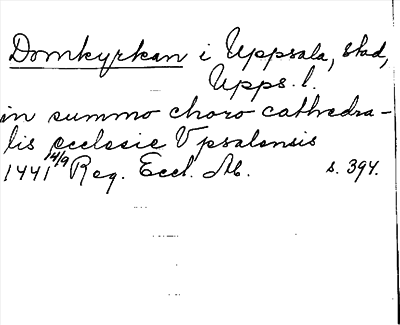 Domkyrkan i Uppsala, stad,
Upps. l.
in summo choro cathedra-
lis ecclesie Vpsalensis
1441 14/9 Reg. Eccl. M. s. 394.